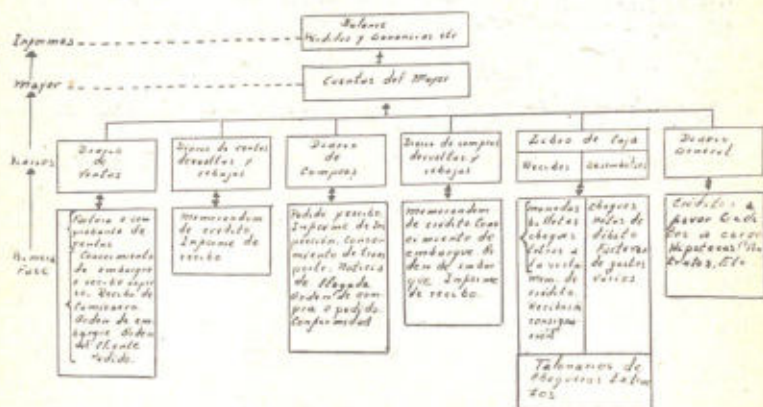 Informes
Balance
Pérdidas y Ganancias etc
Mayor
Cuentas del Mayor
Diarios
Diario
de
Ventas
Diario de ventas
devueltas y
rebajas
Diario
de
Compras
Diario de compras
devueltas y
rebajas
Libro de Caja
Recibos
Desembolsos
Diario
General
Primera
Fase
Factura o com
probante de
ventas
Conocimiento
de embarque
o recibo
Recibo de
Camionero
Orden de em
barque Orden
del Cliente
Pedido.
Memorandum
de crédito
Informe de
recibo
Pedido y recibo
Informe de Ins
pección. Conoci
miento de trans
porte. Noticia
de llegada
Orden de com
pra o pedido
Conformidad
Memorandum
de crédito Cono
cimiento de
embarque Or
den de embar
que Informe
de recibo.
Monedas
billetes
cheques
letras a
la vista
mem. de
crédito
consigna
ción
cheques
notas de
débito
Facturas
de gastos
varios
Créditos a
favor
a cargo
Hipotecas
tratos, Etc
Talonarios de
chequeras
tos